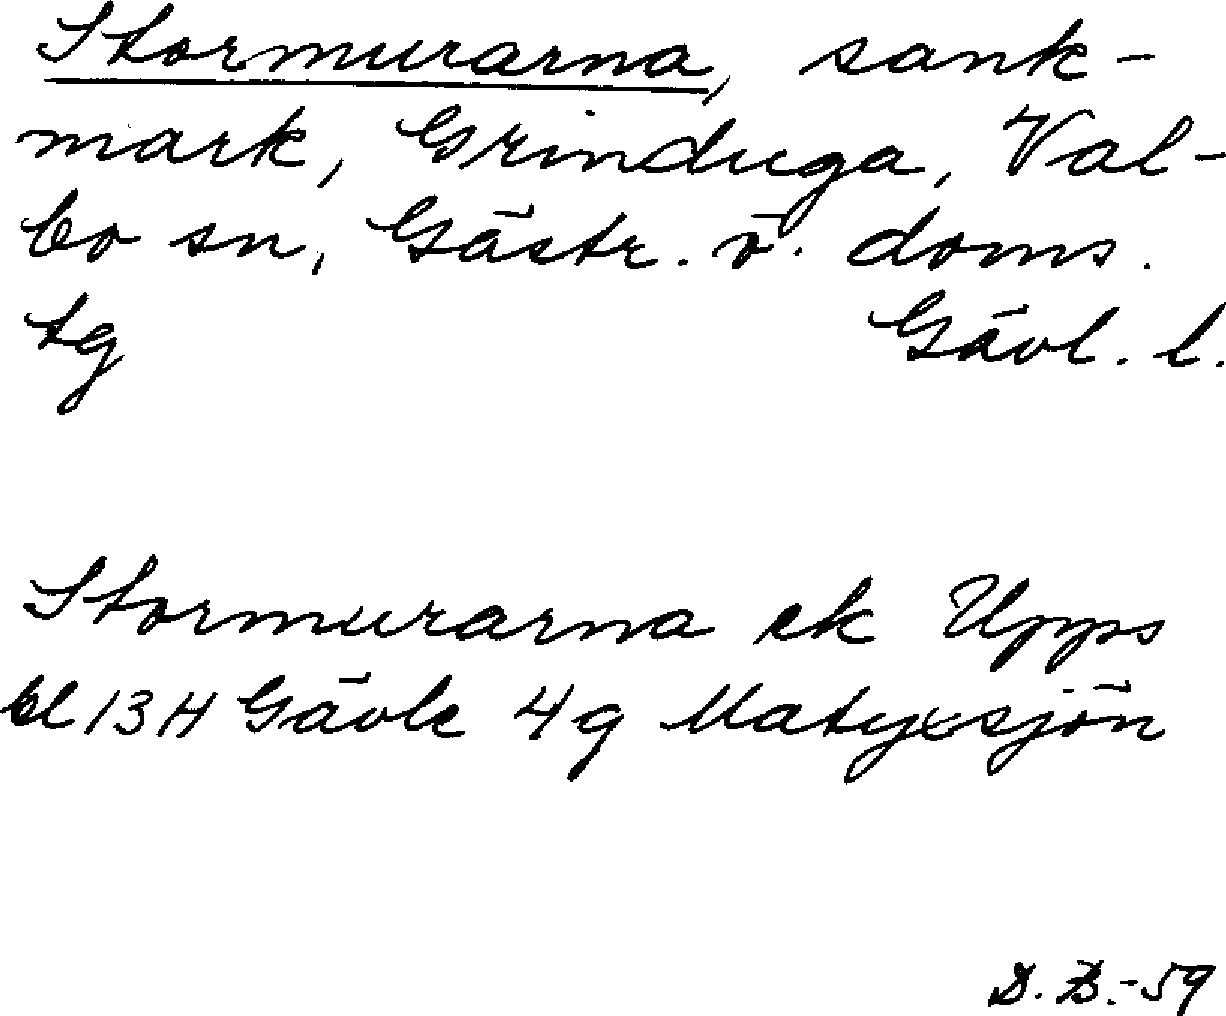 Stormurarna, sank-
mark, Grinduga, Val-
bo sn, Gästr. ö. doms.
tg Gävl. l.
Stormurarna ek Upps
bl 13H Gävle 4g Matyxsjön
D. B. -59